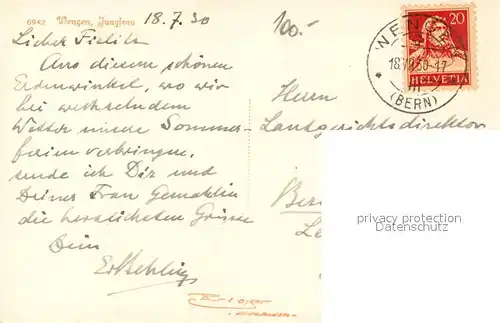 6942 Wengen, Jungfrau
18.7.30
100.-
Lieber
Aus diesem schönen
Erdenwinkel, wo wir
bei wechselndem
Wetter unsere Sommer-
ferien verbringen,
sende ich Dir und
Deiner Frau Gemahlin
die herzlichsten Grüsse
Dein
WENGEN
18.VII.30-17
(BERN)
20
HELVETIA
Herrn
Landgerichtsdirektor
privacy protection
Datenschutz